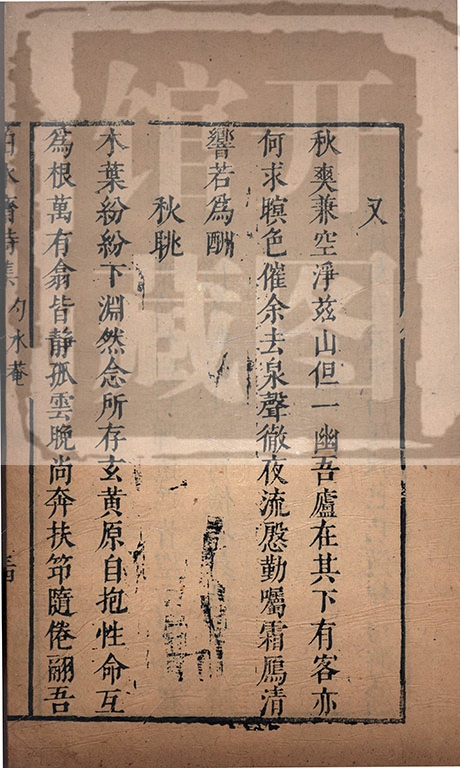 又
秋爽兼空淨茲山但一幽吾廬在其下有客亦
何求暝色催余去泉聲徹夜流慇勤囑霜鴈清
響若為酬
秋眺
木葉紛紛下淵然念所存玄黃原自抱性命互
為根萬有翕皆靜孤雲晚尚奔扶笻隨倦翮吾
水齋詩集 勺水菴
开图
馆藏